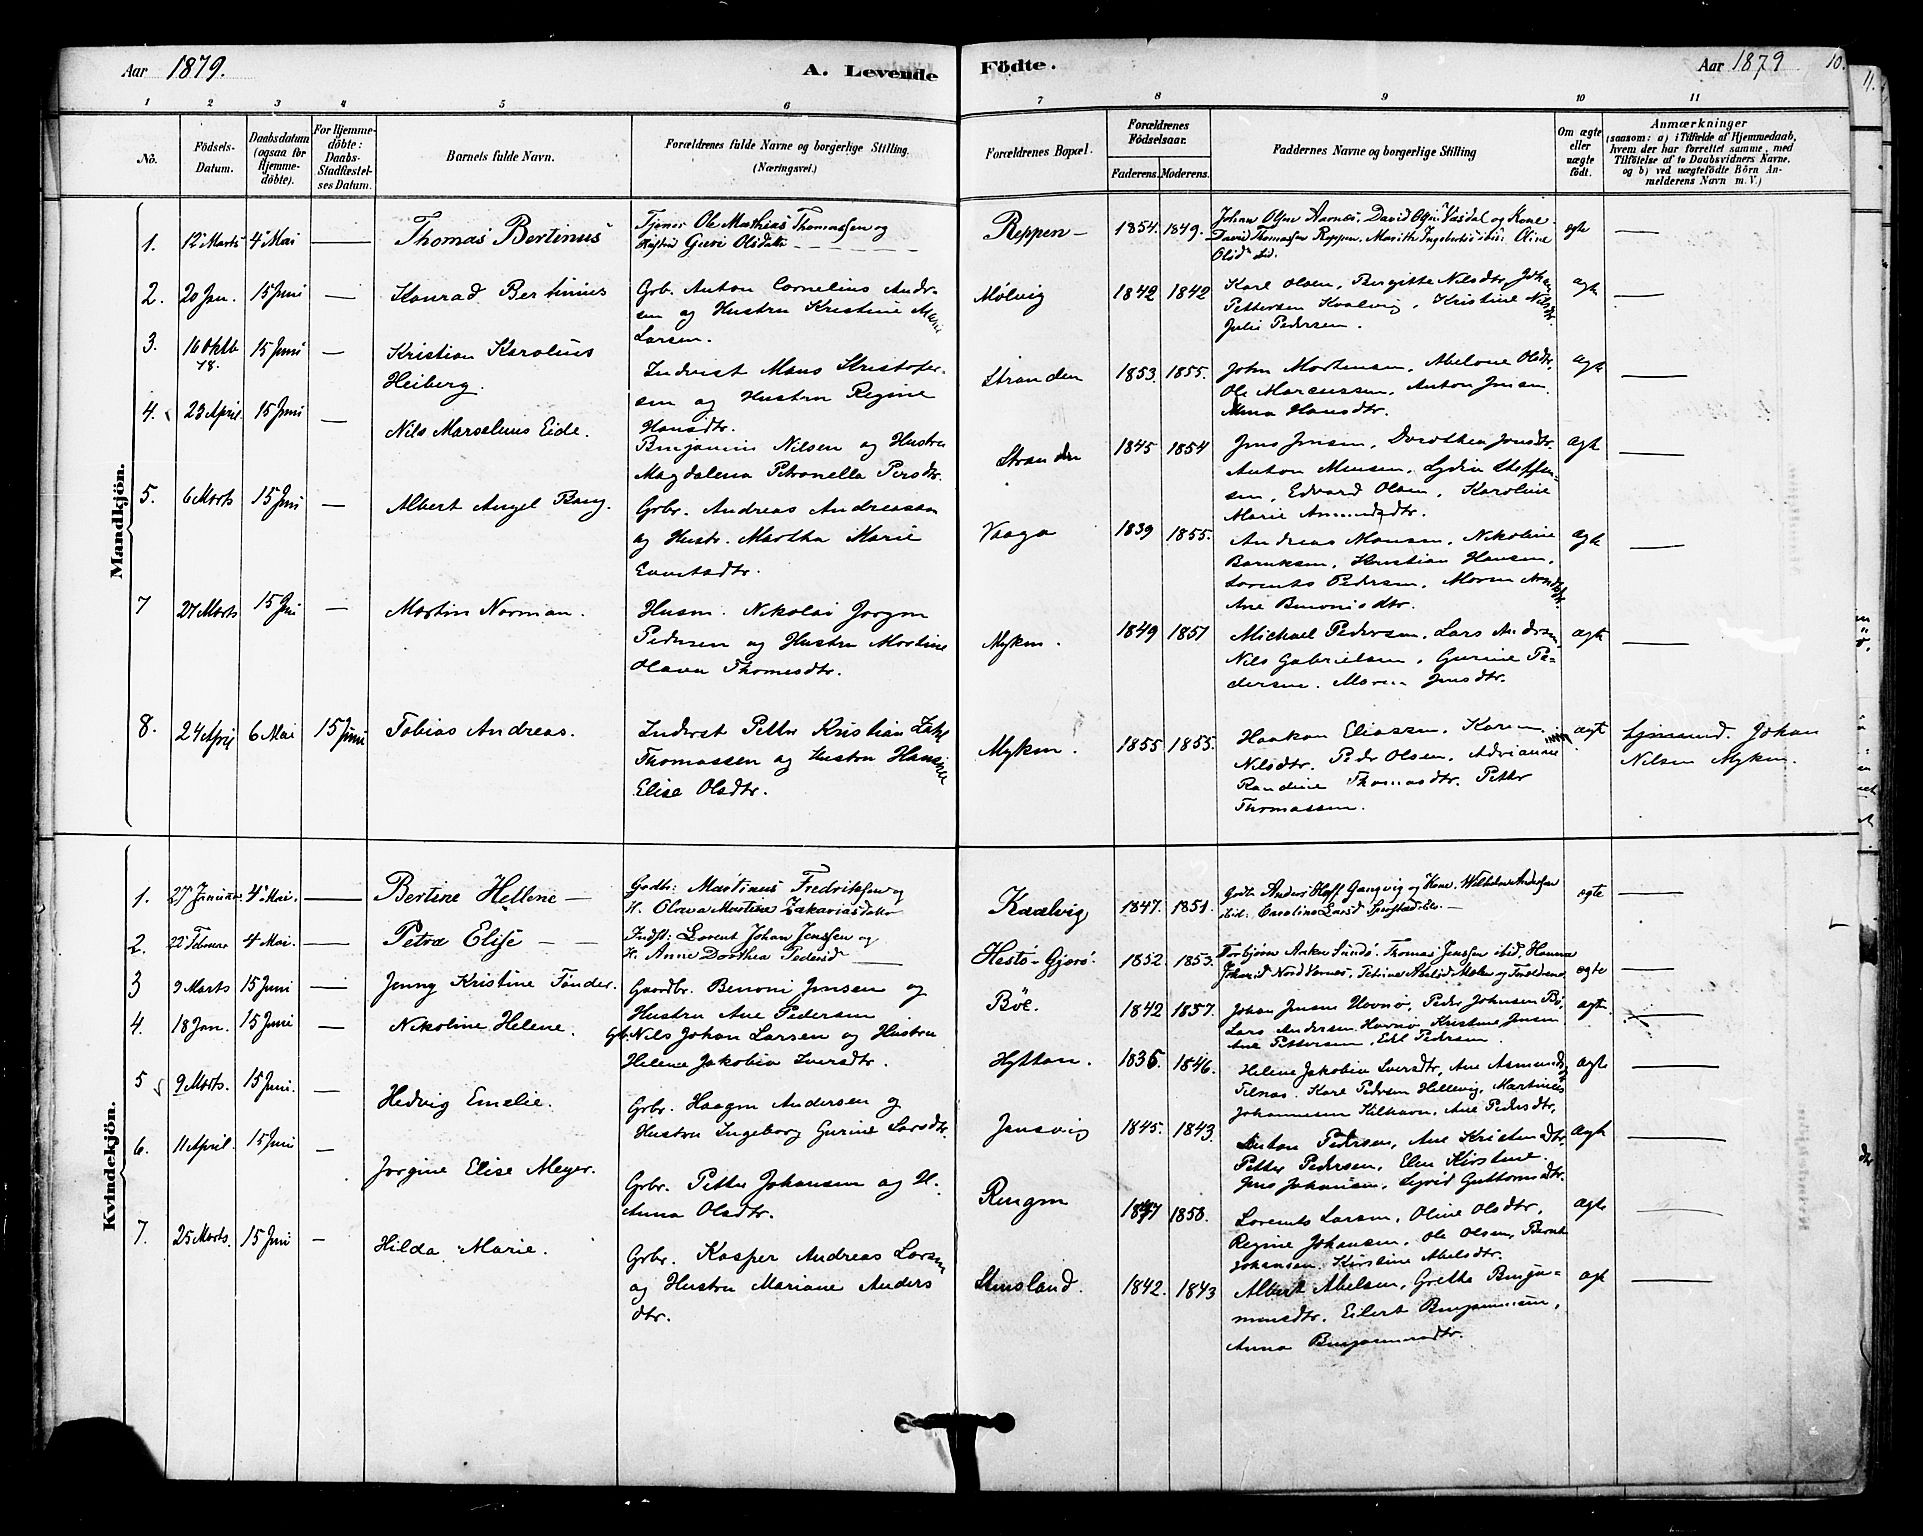 Aar 1879. A. Levende
Födte. Aar 1879 10.
11.
1 2 3 4 5 6 7 8 9 10 11
No.
Födsels-Datum.
Daabsdatum (ogsaa for Hjemme-döbte).
For Hjemme-döbte: Daabs-Stadfæstel-ses Datum.
Barnets fulde Navn.
Forældrenes fulde Navne og borgerlige Stilling (Næringsvei.)
Forældrenes Bopæl.
Forældrenes Födselsaar.
Faderens. Moderens.
Faddernes Navne og borgerlige Stilling
Om ægte eller uægte födt.
Anmærkninger
(saasom: a) i Tilfælde af Hjemmedaab,
hvem der har forrettet samme, med
Tilföielse af to Daabsvidners Navne,
og b) ved uægtefödte Börn An-
melderens Navn m. V.)
Mandkjön.
1. 12 Marts 4 Mai — Thomas Bertinus
Tjener Ole Mathias Thomassen og
Hustru Olsdatter
Reppen — 1854. 1849.
David Thomassen Reppen.
ægte —
2. 20 Jan. 15 Juni — Konrad Bertinius
Grb. Anton Cornelius Andr-
sen og Hustru Kristine Marie
Larsen.
Molvig 1842 1842
Karl Olsen, Bergitte Nilsdtr, Johan
Pettersen Kvalvig, Kristine Nilsdtr.
Julie Pedersen.
ægte —
3. 16 Oktb 78. 15 Juni — Kristian Karolius
Heiberg.
Inderst Mons Kristofer-
sen og Hustru Regine
Hansdtr.
Stranden 1853. 1855.
John Mortensen, Abelone Olsdtr,
Ole Marcussen, Anton Jensen
Anna Hansdtr.
ægte —
4. 23 April. 15 Juni — Nils Marselius Eide.
Benjamin Nilsen og Hustru
Magdalena Petronella Persdtr.
Stranden 1845 1854
Jens Jensen, Dorothea Jensdtr.
Anton Monsen, Lydia Steffen-
sen, Edvard Olsen, Karoline
Marie Amundsdtr.
ægte —
5. 6 Marts 15 Juni — Albert Angel Bang.
Grbr. Andreas Andreassen
og Hustr. Martha Marie
Evertsdtr.
Vaaga 1839 1855.
Andreas Monsen, Nikoline
Baruksen, Kristian Hansen,
Lorents Pedersen, Maren
Ane Benonisdtr.
ægte —
7 27 Marts 15 Jui — Martin Norman.
Husm. Nikolai Jørgen
Pedersen og Hustru Martine
Olava Thomesdtr.
Myken. 1849 1851
Michael Pedersen, Lars Andersen,
Nils Gabrielsen, Gurine Pe-
dersen. Maren Jensdtr.
ægte —
8. 24 April 6 Mai 15 Juni Tobias Andreas.
Inderst Petter Kristian
Thomassen og Hustru Hansine
Elise Olsdtr.
Myken. 1855 1855.
Haakon Eliassen, Karen
Nilsdtr. Peder Olsen, Adrianne
Randine Thomasdtr. Petter
Thomassen.
ægte
Johan
Nilsen Myken.
Kvindekjön.
1. 27 Januar 4 Mai. — Bertine Hellene —
Martinus Fredriksen og
H. Olava Martine Zakariasdatter
Kvalvig 1847. 1851.
ægte —
2. 22 Februar 4 Mai. — Petra Elise —
Indst: Lorent Johan Jenssen og
H. Anne Dorthea Pedersd —
Hestö-Gjerö. 1852. 1853.
Torbjørn Sundö. Thomas Jenssen ibid, Hanna
ægte —
3 9 Marts 15 Juni — Jenny Kristine Tønder.
Gaardbr. Benoni Jensen og
Hustru Ane Pedersen
Böe. 1842 1857.
Johan Jensen Havnö, Peder Johnsen Bö,
Lars Andersen Havnö, Kristine Jensen
Ane Pettersen, Pedersen.
ægte. —
4. 18 Jan. 15 Juni — Nikoline Helene.
Grb. Nils Johan Larsen og Hustru
Helene Jakobia Iversdtr.
Hyttan. 1836 1846.
Helene Jakobia Iversdtr, Ane
Karl Pedersen Hellevig, Martines
Johannesen Kilhavn, Ane Pedersdtr,
ægte —
5 9 Marts. 15 Juni. — Hedvig Emelie.
Grbr. Haagen Andersen og
Hustru Ingeborg Gurine Larsdtr.
Jensvig 1845. 1843.
Anton Pedersen, Ane Kristendtr,
Petter Pedersen, Elen Kirstine.
Jens Johansen, Sigrid Guttormsdtr.
ægte —
6. 11 April. 15 Juni — Jorgine Elise Meyer.
Grbr. Petter Johansen og H.
Anna Olsdtr.
Ringen 1847 1858.
Lorents Larsen, Oline Olsdtr,
Regine Johansen, Ole Olsen, Bernt
Johansen, Kirstine Abelsdtr.
ægte —
7. 25 Marts. 15 Juni — Hilda Marie.
Grbr. Kasper Andreas Larsen
og Hustru Mariane Anders
dtr.
Stensland. 1842. 1843
Albert Abelsen, Grethe Benja-
minsdtr. Eilert Benjaminsen,
Anna Benjaminsdtr.
ægt —